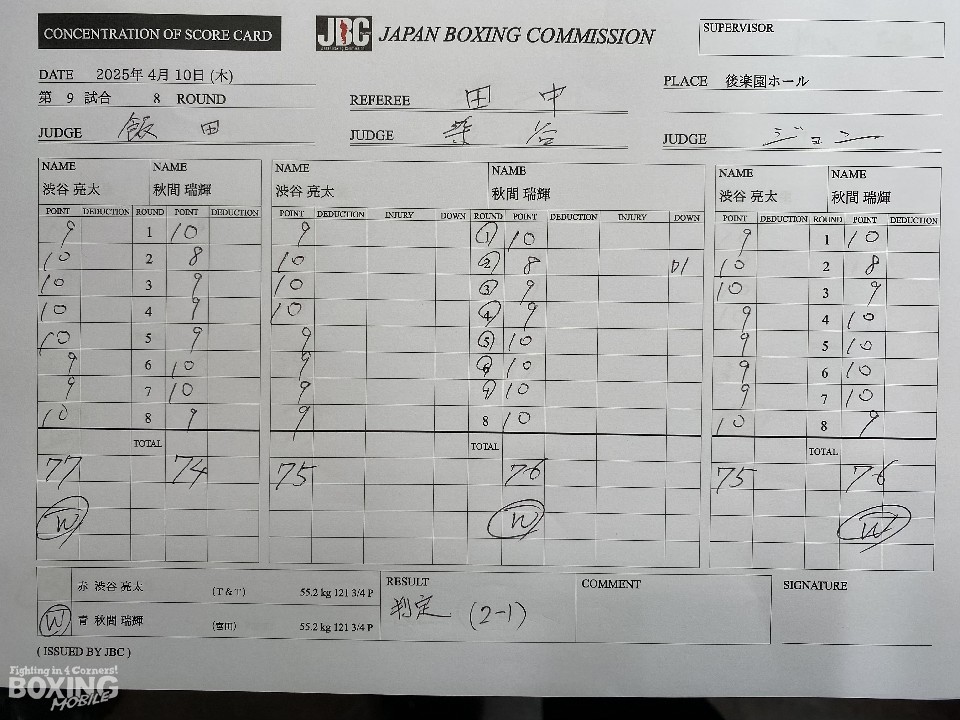 CONCENTRATION OF SCORE CARD
JBC JAPAN BOXING COMMISSION
SUPERVISOR
DATE 2025年 4月 10日 (木)
第 9 試合 8 ROUND
REFEREE 田中
PLACE 後楽園ホール
JUDGE 飯田
JUDGE 葉谷
JUDGE ジョン
NAME NAME NAME NAME NAME NAME
渋谷 亮太 秋間 瑞輝 渋谷 亮太 秋間 瑞輝 渋谷 亮太 秋間 瑞輝
POINT DEDUCTION ROUND POINT DEDUCTION POINT DEDUCTION INJURY DOWN ROUND POINT DEDUCTION INJURY DOWN POINT DEDUCTION ROUND POINT DEDUCTION
9 1 10 9 1 10 9 1 10
10 2 8 10 2 8 D1 10 2 8
10 3 9 10 3 9 10 3 9
10 4 9 10 4 9 9 4 10
10 5 9 9 5 10 9 5 10
9 6 10 9 6 10 9 6 10
9 7 10 9 7 10 9 7 10
10 8 9 9 8 10 10 8 9
TOTAL TOTAL TOTAL
77 74 75 76 75 76
W W W
赤 渋谷 亮太 (T & T) 55.2 kg 121 3/4 P
W 青 秋間 瑞輝 (宮田) 55.2 kg 121 3/4 P
RESULT
判定 (2-1)
COMMENT
SIGNATURE
( ISSUED BY JBC )
Fighting in 4 Corners!
BOXING
MOBILE